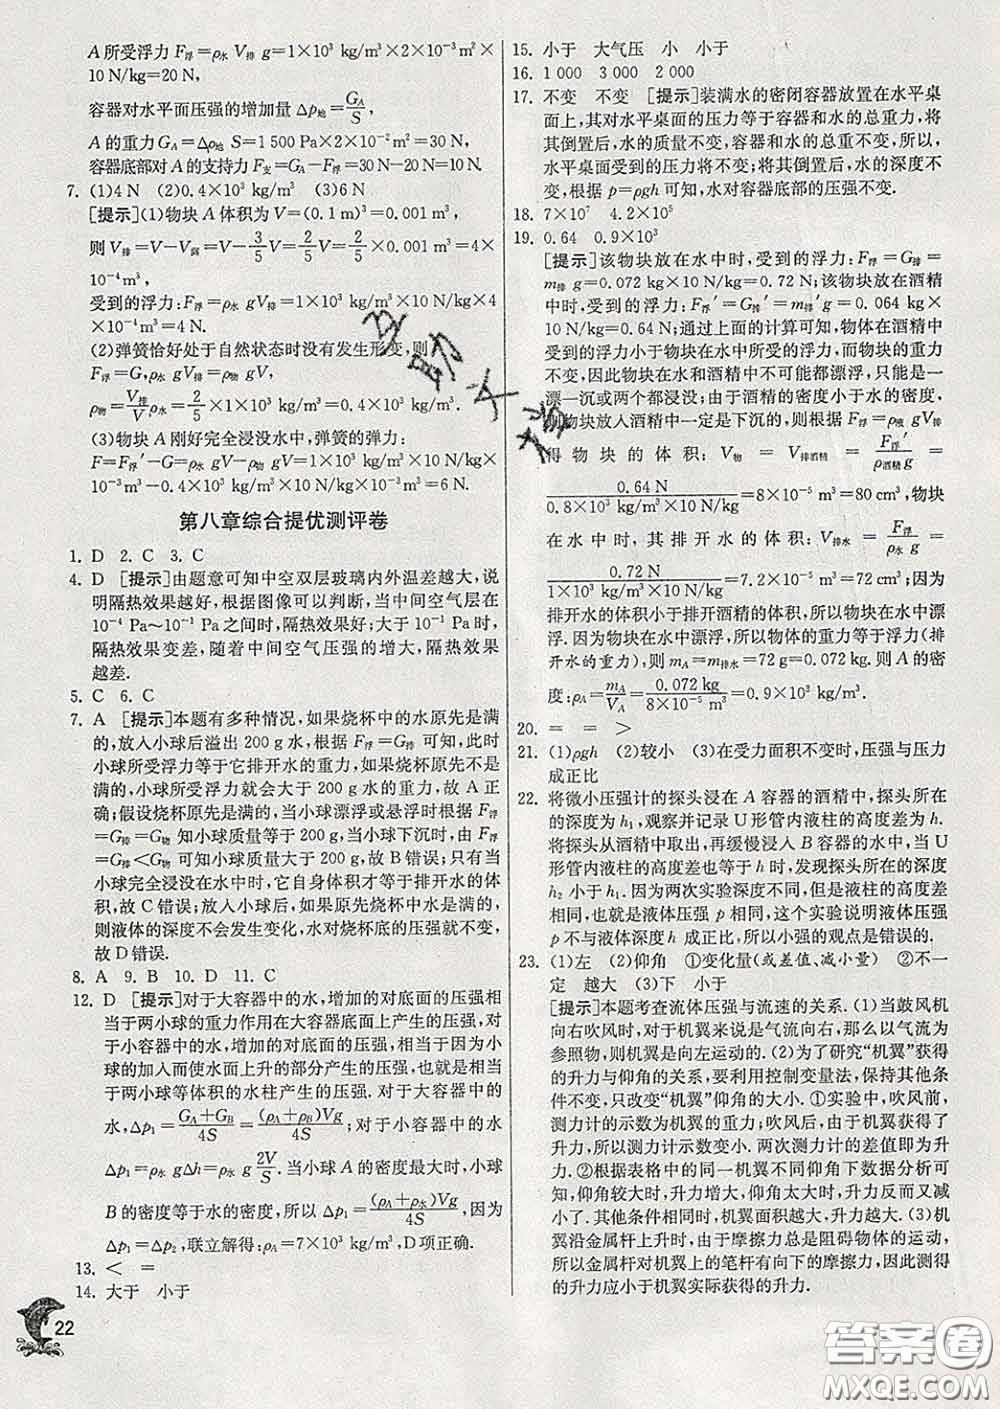 A所受浮力F浮=ρ水 V排 g=1×10³ kg/m³×2×10⁻³m²×
10 N/kg=20 N,
容器对水平面压强的增加量 Δp地=G_A/S,
A的重力G_A=Δp地 S=1 500 Pa×2×10⁻² m²=30 N,
容器底部对A的支持力F支=G_A−F浮=30 N−20 N=10 N.
7. (1)4 N (2)0.4×10³ kg/m³ (3)6 N
[提示](1)物块A体积为V=(0.1 m)³=0.001 m³,
则V排=V−V露=V−3/5V=2/5V=2/5×0.001 m³=4×
10⁻⁴m³,
受到的浮力:F浮=ρ水 gV排=1×10³ kg/m³×10 N/kg×4
×10⁻⁴m³=4 N.
(2)弹簧恰好处于自然状态时没有发生形变,则
F浮=G,ρ水 gV排=ρ物 gV,
ρ物=V排/Vρ水=2/5×1×10³ kg/m³=0.4×10³ kg/m³.
(3)物块A刚好完全浸没水中,弹簧的弹力:
F=F浮′−G=ρ水 gV−ρ物 gV=1×10³ kg/m³×10 N/kg×
10⁻³m³−0.4×10³ kg/m³×10 N/kg×10⁻³m³=6 N.
第八章综合提优测评卷
1. D 2. C 3. C
4. D [提示]由题意可知中空双层玻璃内外温差越大,说
明隔热效果越好,根据图像可以判断,当中间空气层在
10⁻⁴ Pa~10⁻¹ Pa之间时,隔热效果好;大于10⁻¹ Pa时,
隔热效果变差,随着中间空气压强的增大,隔热效果
越差.
5. C 6. C
7. A [提示]本题有多种情况,如果烧杯中的水原先是满
的,放入小球后溢出200 g水,根据F浮=G排 可知,此时
小球所受浮力等于它排开水的重力,如果烧杯原先不是
满的,小球所受浮力就会大于200 g水的重力,故A正
确;假设烧杯原先是满的,当小球漂浮或悬浮时根据F浮
=G排=G物 知小球质量等于200 g,当小球下沉时,由F浮
=G排<G物 可知小球质量大于200 g,故B错误;只有当
小球完全浸没在水中时,它自身体积才等于排开水的体
积,故C错误;放入小球后,如果原先烧杯中的水是满的,
则液体的深度不会发生变化,水对烧杯底的压强就不变,
故D错误.
8. A 9. B 10. D 11. C
12. D [提示]对于大容器中的水,增加的对底面的压强相
当于两小球的重力作用在大容器底面上产生的压强,对
于小容器中的水,增加的对底面的压强,相当于因为小
球的加入而使水面上升的部分产生的压强,也就是相当
于两小球等体积的水柱产生的压强.对于大容器中的
水,Δp₁=(G_A+G_B)/4S=(ρ_A+ρ_B)Vg/4S;对于小容器中的水
Δp₁=ρ水 gΔh=ρ水 g 2V/S.当小球A的密度最大时,小球
B的密度等于水的密度,所以Δp₁=(ρ_A+ρ水)Vg/4S,因为
Δp₁=Δp₂,联立解得:ρ_A=7×10³ kg/m³,D项正确.
13. < =
14. 大于 小于
22
15. 小于 大气压 小 小于
16. 1 000 3 000 2 000
17. 不变 不变 [提示]装满水的密闭容器放置在水平桌
面上,其对水平桌面的压力等于容器和水的总重力,将
其倒置后,水的质量不变,容器和水的总重不变,所以,
水平桌面受到的压力将不变;将其倒置后,水的深度不
变,根据p=ρgh可知,水对容器底部的压强不变.
18. 7×10⁷ 4.2×10⁵
19. 0.64 0.9×10³
[提示]该物块放在水中时,受到的浮力:F浮=G排=
m排 g=0.072 kg×10 N/kg=0.72 N;该物块放在酒精
中时,受到的浮力:F浮′=G排′=m排′g=0.064 kg×
10 N/kg=0.64 N;通过上面的计算可知,物体在酒精中
受到的浮力小于物块在水中所受的浮力,而物块的重力
不变,因此物块在水和酒精中不可能都漂浮,只能是一
漂一沉或两个都浸没;由于酒精的密度小于水的密度,
则物块放入酒精中一定是下沉的,则根据F浮=ρ液 gV排
得物块的体积:V物=V排酒精=F浮′/ρ酒精 g=
0.64 N/(0.8×10³ kg/m³×10 N/kg)=8×10⁻⁵ m³=80 cm³,物块
在水中时,其排开水的体积:V排水=F浮/ρ水 g=
0.72 N/(1×10³ kg/m³×10 N/kg)=7.2×10⁻⁵ m³;因为
排开水的体积小于排开酒精的体积,所以物块在水中漂
浮.因为物块在水中漂浮,所以物体的重力等于浮力(排
开水的重力),则m_A=m排水=72 g=0.072 kg.则A的密
度:ρ_A=m_A/V_A=0.072 kg/(8×10⁻⁵ m³)=0.9×10³ kg/m³.
20. = = >
21. (1)ρgh (2)较小 (3)在受力面积不变时,压强与压力
成正比
22. 将微小压强计的探头浸在A容器的酒精中,探头所在
的深度为h₁,观察并记录U形管内液柱的高度差为h.
将探头从酒精中取出,再缓慢浸入B容器的水中,当U
形管内液柱的高度差也等于h时,发现探头所在的深度
h₂小于h₁.因为两次实验深度不同,但是液柱的高度差
相同,也就是液体压强p相同,这个实验说明液体压强
p不与液体深度h成正比,所以小强的观点是错误的.
23. (1)左 (2)仰角 ①变化量(或差值、减小量) ②不一
定 越大 (3)下 小于
[提示]本题考查流体压强与流速的关系.(1)当鼓风机
向右吹风时,对于机翼来说是气流向右,那么以气流为
参照物,则机翼是向左运动的.(2)为了研究“机翼”获得
的升力与仰角的关系,要利用控制变量法,保持其他条
件不变,只改变“机翼”仰角的大小.①实验中,吹风前,
测力计的示数为机翼的重力;吹风后,由于机翼获得了
升力,所以测力计示数变小.两次测力计的差值即为升
力.②根据表格中的同一机翼不同仰角下数据分析可
知,仰角较大时,升力增大,仰角太大时,升力反而又减
小了.其他条件相同时,机翼面积越大,升力越大.(3)机
翼沿金属杆上升时,由于摩擦力总是阻碍物体的运动,
所以,金属杆对套在上面的笔杆有向下的摩擦力,所测
得的升力应小于机翼实际获得的升力.
答案圈
MXQE.COM